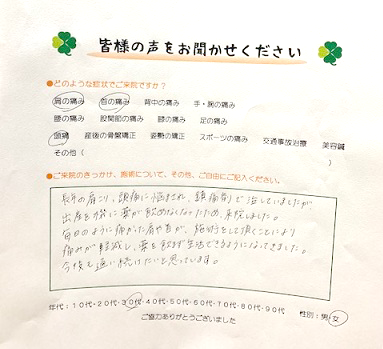 皆様の声をお聞かせください
●どのような症状でご来院ですか？
肩の痛み 首の痛み 背中の痛み 手・腕の痛み
腰の痛み 股関節の痛み 膝の痛み 足の痛み
頭痛 産後の骨盤矯正 姿勢の矯正 スポーツの痛み 交通事故治療 美容鍼
その他（ ）
●ご来院のきっかけ、施術について、その他、ご自由にご記入ください。
長年の肩こり、頭痛に悩まされ、鎮痛剤で治していましたが
出産を機に薬が飲めなくなったため、来院しました。
毎日のように痛かった肩や首が、施術をして頂くことにより
痛みが軽減し、薬を飲まず生活できるようになってきました。
今後も通い続けたいと思っています。
年代：10代・20代・30代・40代・50代・60代・70代・80代・90代 性別：男・女
ご協力ありがとうございました